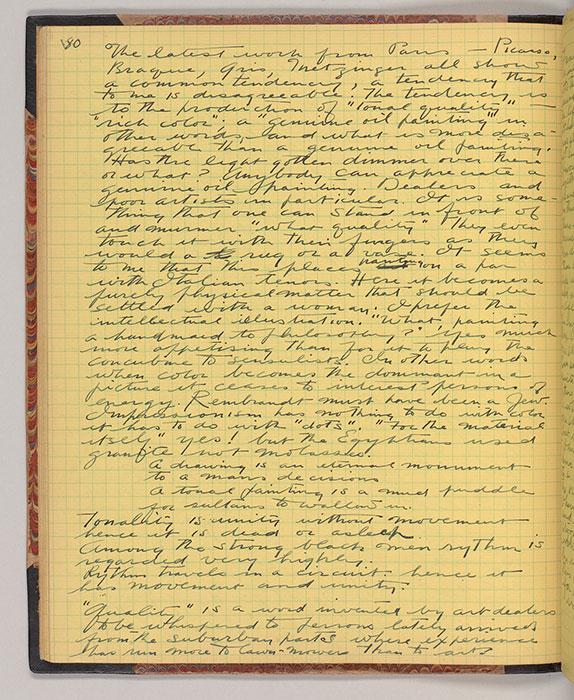 180
The latest work from Paris — Picasso,
Braque, Gris, Metzinger all show
a common tendency, a tendency that
to me is disagreeable. The tendency is
to the production of "tonal quality"
"rich color". a "genuine oil painting" in
other words, and what is more disa-
greeable than a genuine oil painting.
Has the light gotten dimmer over there
or what? Anybody can appreciate a
genuine oil painting. Dealers and
poor artists in particular. It is some-
thing that one can stand in front of
and murmer "what quality" They even
touch it with their fingers as they
would a rug or a vase. It seems
to me that this places painting on a par
with Italian tenors. Here it becomes a
purely physical matter that should be
settled with a woman. I prefer the
intellectual illustration. "What painting
a handmaid to philosophy?" Yes much
more appetising than for it to play the
concubine to sensualists. In other words
when color becomes the dominant in a
picture it ceases to interest persons of
energy. Rembrandt must have been a Jew.
Impressionism has nothing to do with color
it has to do with "dots". "For the material
itself" yes! but the Egyptians used
granite not molasses.
A drawing is an eternal monument
to a mans decisions
A tonal painting is a mud puddle
for sultans to wallow in.
Tonality is unity without movement
hence it is dead or asleep.
Among the strong black men rythm is
regarded very highly.
Rythm travels in a circuit hence it
has movement and unity.
"Quality" is a word invented by art dealers
to be whispered to persons lately arrived
from the suburban parts where experience
has run more to lawn-mowers than to arts